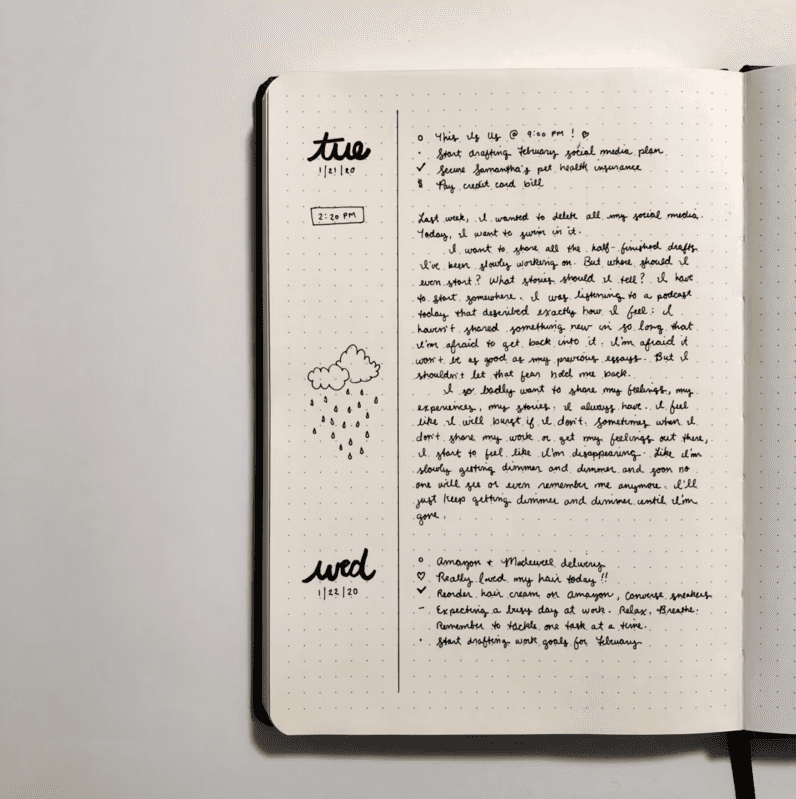 tue
1|21|20
o This Is Us @ 9:00 PM ! ♡
· Start drafting February social media plan
✓ Secure Samantha's pet health insurance
$ Pay credit card bill
2:20 PM
Last week, I wanted to delete all my social media.
Today, I want to swim in it.
I want to share all the half-finished drafts
I've been slowly working on. But where should I
even start? What stories should I tell? I have
to start somewhere. I was listening to a podcast
today that described exactly how I feel: I
haven't shared something new in so long that
I'm afraid to get back into it. I'm afraid it
won't be as good as my previous essays. But I
shouldn't let that fear hold me back.
I so badly want to share my feelings, my
experiences, my stories. I always have. I feel
like I will burst if I don't. Sometimes when I
don't share my work or get my feelings out there,
I start to feel like I'm disappearing. Like I'm
slowly getting dimmer and dimmer and soon no
one will see or even remember me anymore. I'll
just keep getting dimmer and dimmer until I'm
gone.
wed
1|22|20
o Amazon + Madewell delivery
♡ Really loved my hair today !!
✓ Reorder hair cream on Amazon, Converse sneakers
– Expecting a busy day at work. Relax. Breathe.
Remember to tackle one task at a time.
· Start drafting work goals for February